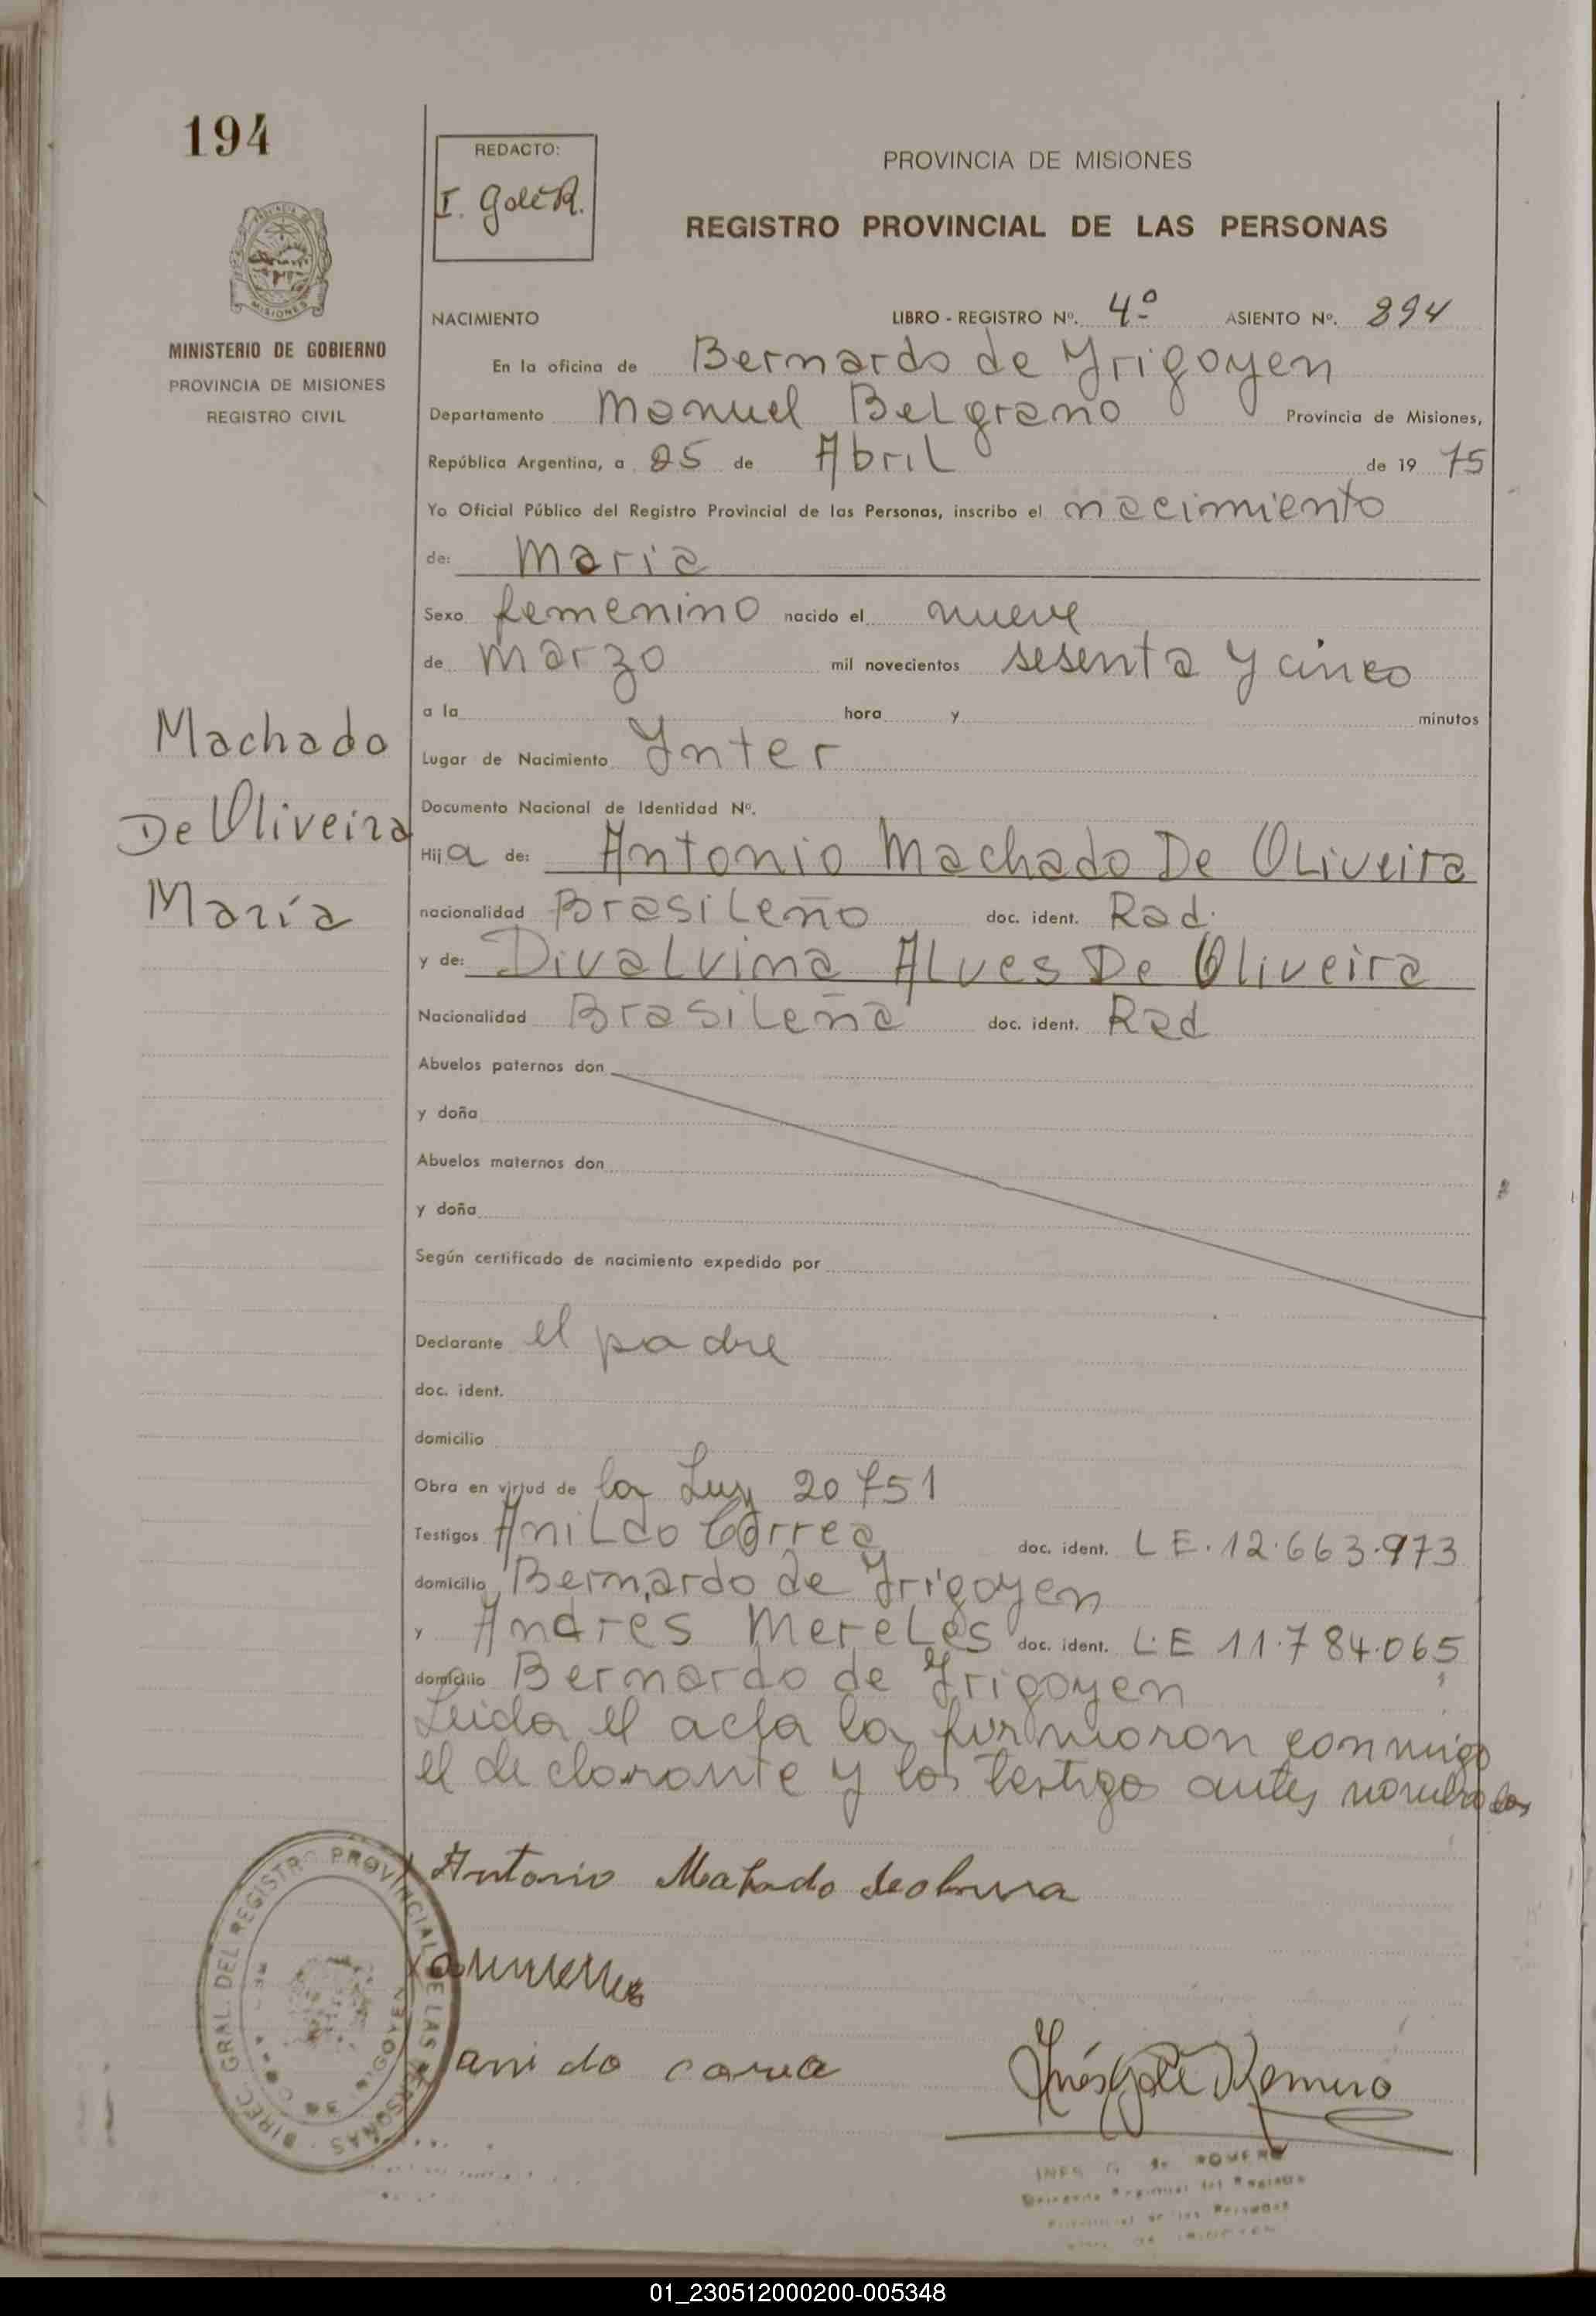 194
REDACTO:
I. Galé R.
PROVINCIA DE MISIONES
REGISTRO PROVINCIAL DE LAS PERSONAS
MISIONES
MINISTERIO DE GOBIERNO
PROVINCIA DE MISIONES
REGISTRO CIVIL
NACIMIENTO LIBRO - REGISTRO Nº. 4º ASIENTO Nº. 894
En la oficina de Bernardo de Yrigoyen
Departamento Manuel Belgrano Provincia de Misiones,
República Argentina, a 25 de Abril de 19 75
Yo Oficial Público del Registro Provincial de las Personas, inscribo el nacimiento
de: Maria
Sexo femenino nacido el nueve
de Marzo mil novecientos sesenta y cinco
a la hora y minutos
Lugar de Nacimiento Ynter
Documento Nacional de Identidad Nº.
Machado
De Oliveira
María
Hija de: Antonio Machado De Oliveira
nacionalidad Brasileño doc. ident. Rad.
y de: Divalvina Alves De Oliveira
Nacionalidad Brasileña doc. ident. Rad
Abuelos paternos don
y doña
Abuelos maternos don
y doña
Según certificado de nacimiento expedido por
Declarante el padre
doc. ident.
domicilio
Obra en virtud de la Ley 20751
Testigos Anildo Correa doc. ident. L E. 12.663.973
domicilio Bernardo de Yrigoyen
y Andrés Mereles doc. ident. L.E 11.784.065
domicilio Bernardo de Yrigoyen
Leida el acta la firmaron conmigo
el declarante y los testigos antes nombrados
Antonio Machado
DIREC. GRAL. DEL REGISTRO PROVINCIAL DE LAS PERSONAS
anido
Inés Galé Romero
INES G. de ROMERO
01_230512000200-005348